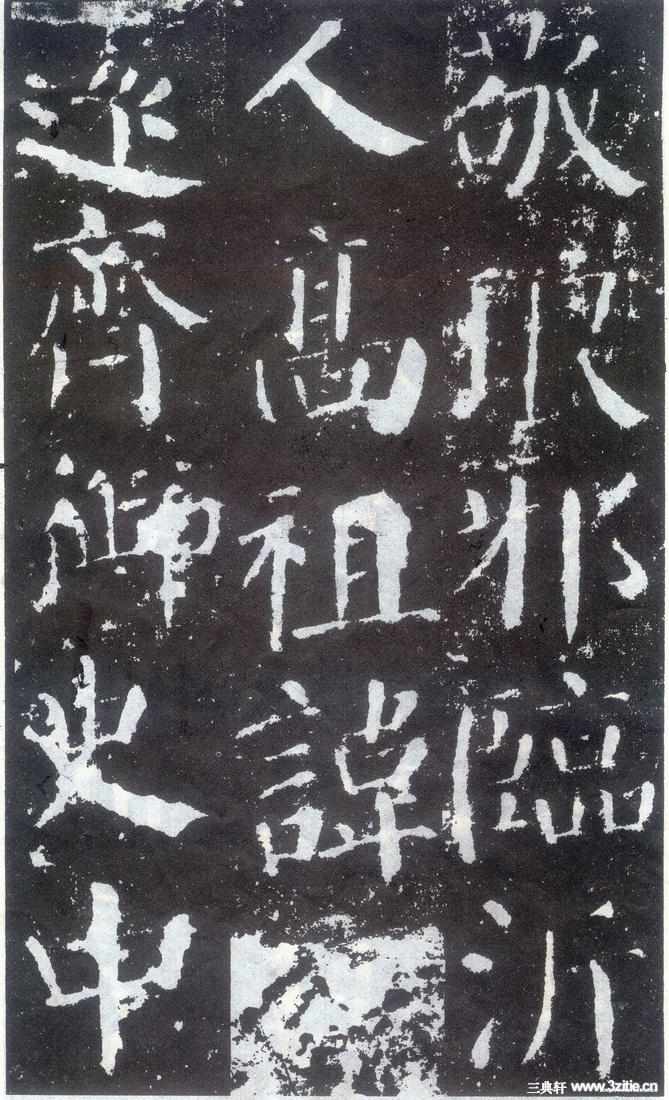 敬琅邪臨沂
人高祖諱
遠齊御史中
三典轩 www.3zitie.cn